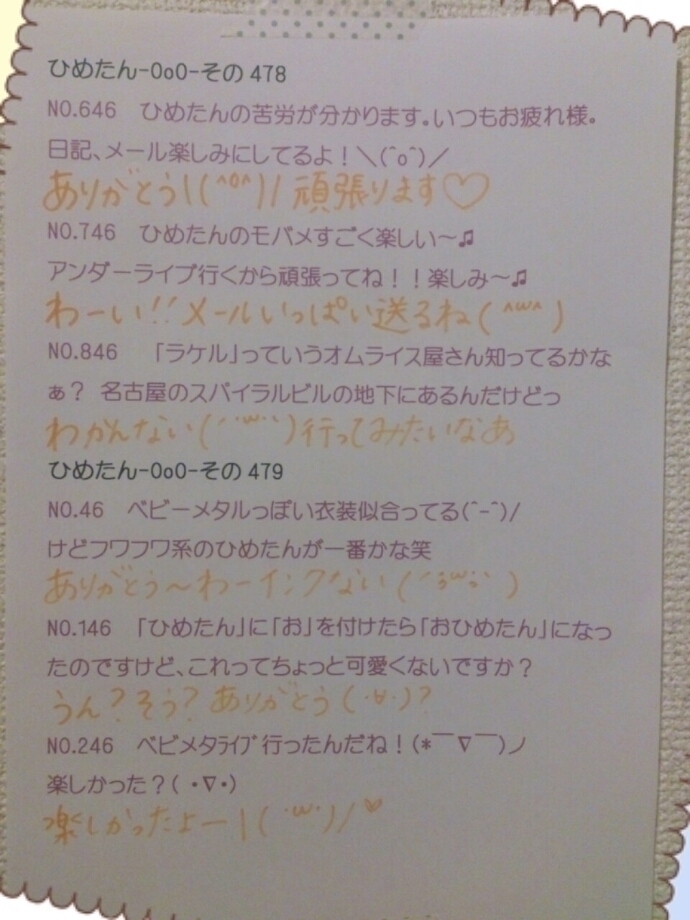 ひめたん-OoO-その478
NO.646　ひめたんの苦労が分かります。いつもお疲れ様。
日記、メール楽しみにしてるよ！＼(^o^)／
ありがとう\(^o^)/ 頑張ります♡
NO.746　ひめたんのモバメすごく楽しい～♫
アンダーライブ行くから頑張ってね！！楽しみ～♫
わーい!! メールいっぱい送るね(^ω^)
NO.846　「ラケル」っていうオムライス屋さん知ってるかな
ぁ？ 名古屋のスパイラルビルの地下にあるんだけどっ
わかんない(´･ω･`)行ってみたいなあ
ひめたん-OoO-その479
NO.46　ベビーメタルっぽい衣装似合ってる(^-^)/
けどフワフワ系のひめたんが一番かな笑
ありがとう～わーインクない(´;ω;`)
NO.146　「ひめたん」に「お」を付けたら「おひめたん」になっ
たのですけど、これってちょっと可愛くないですか？
うん？そう？ありがとう(･∀･)？
NO.246　ベビメタﾗｲﾌﾞ行ったんだね！(*￣∇￣)ノ
楽しかった？( ･∇･)
楽しかったよー\(･ω･)/♡